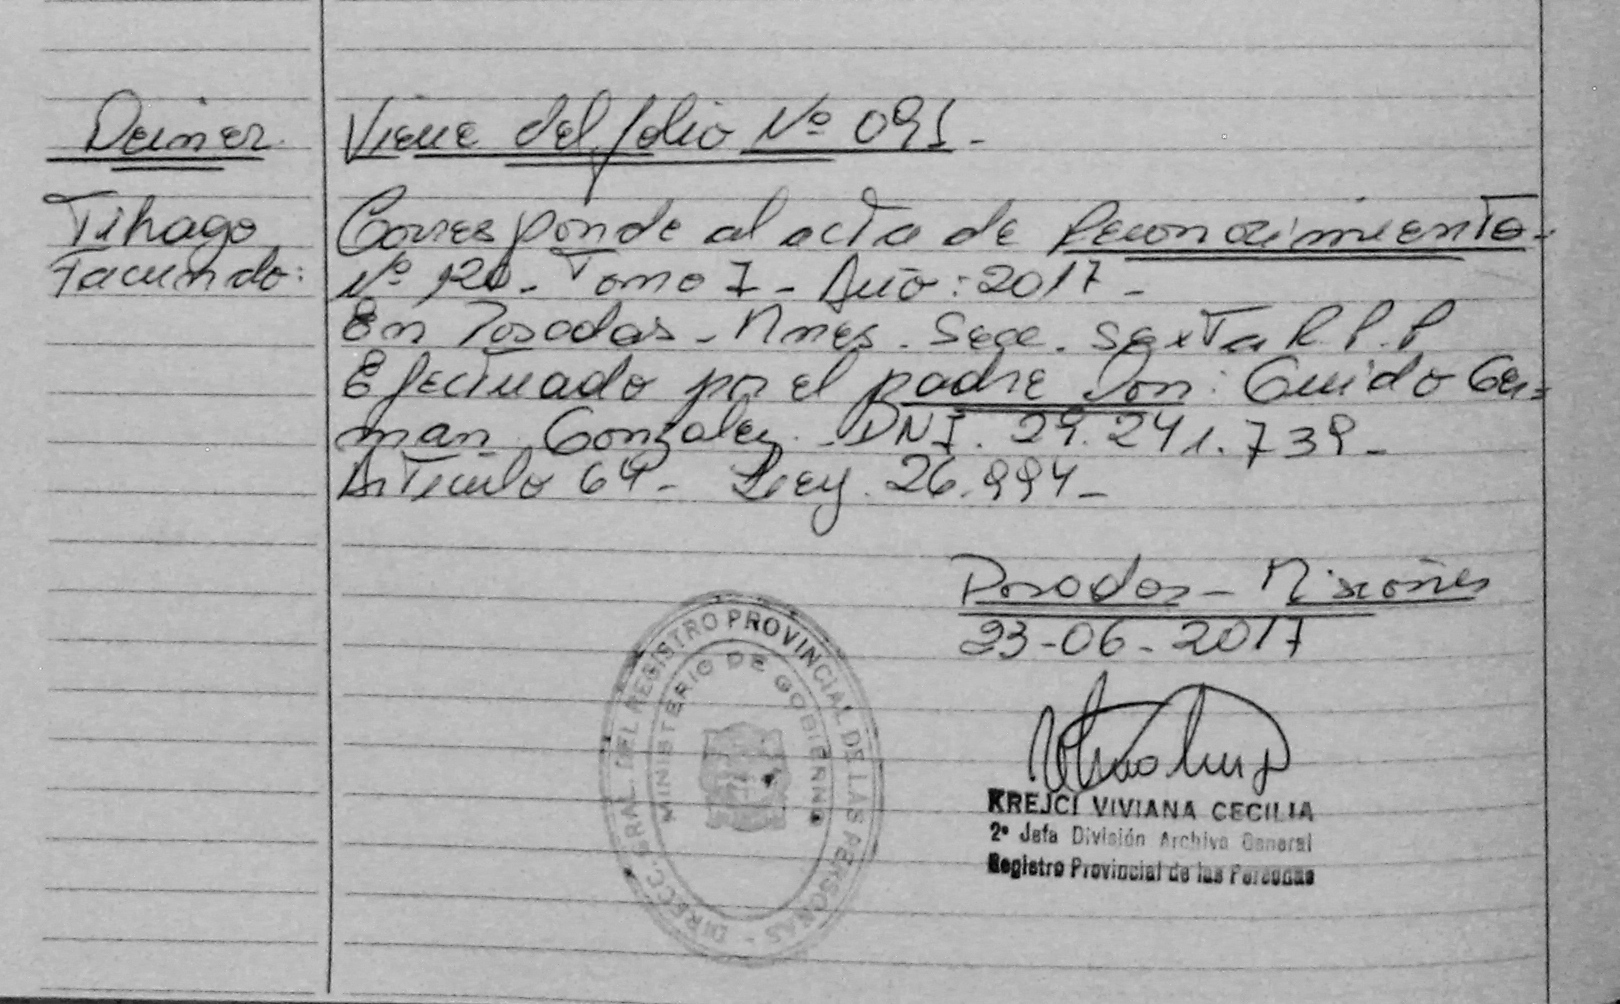 Deiner
Viene del folio Nº 091-
Tihago
Facundo:
Corresponde al acta de Reconocimiento-
Nº 120- Tomo I - Año: 2017-
En Posadas - Mnes. Secc. Sexta R.P.P
Efectuado por el padre Don: Guido Ger=
man Gonzalez. DNI. 29.241.739-
Articulo 64- Ley. 26.994-
Posadas - Misiones
23-06-2017
DIRECC. GRAL. DEL REGISTRO PROVINCIAL DE LAS PERSONAS -
MINISTERIO DE GOBIERNO
KREJCI VIVIANA CECILIA
2º Jefa División Archivo General
Registro Provincial de las Personas